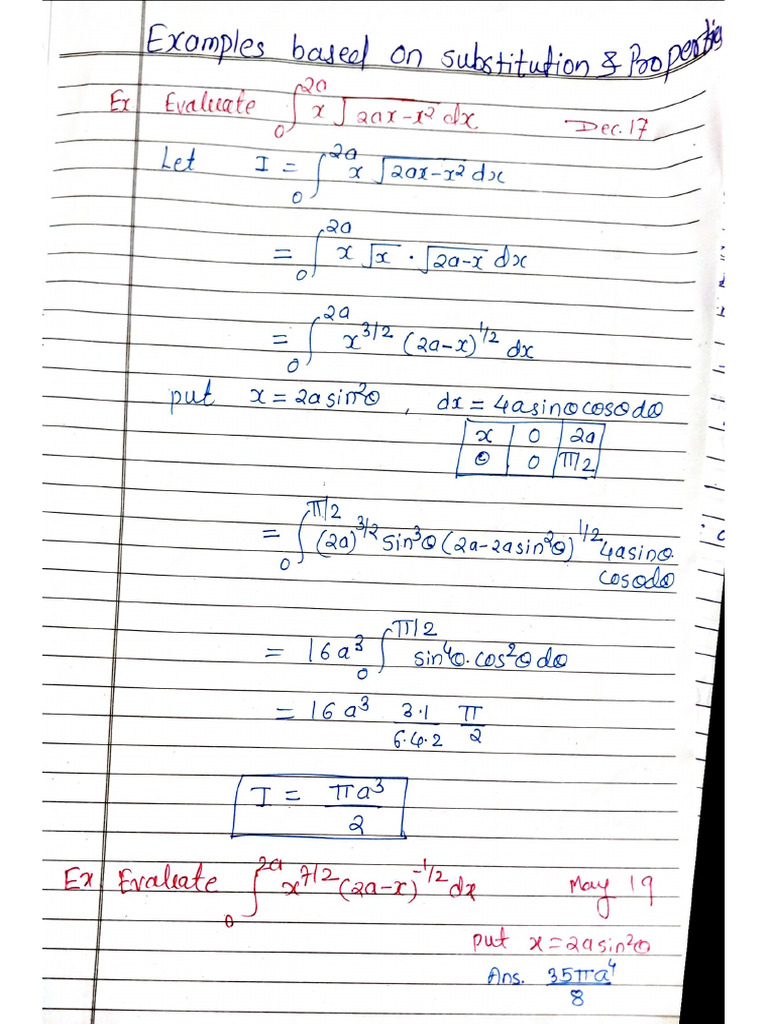 Examples based on substitution & Properties
Ex Evaluate ∫₀^2a x √(2ax-x²) dx Dec.17
Let I = ∫₀^2a x √(2ax-x²) dx
= ∫₀^2a x √x · √(2a-x) dx
= ∫₀^2a x^3/2 (2a-x)^1/2 dx
put x = 2a sin²θ , dx = 4a sinθ cosθ dθ
x 0 2a
θ 0 π/2
= ∫₀^π/2 (2a)^3/2 sin³θ (2a-2a sin²θ)^1/2 4a sinθ.
cosθ dθ
= 16a³ ∫₀^π/2 sin⁴θ. cos²θ dθ
= 16a³ 3·1/6·4·2 π/2
I = πa³/2
Ex Evaluate ∫₀^2a x^7/2 (2a-x)^-1/2 dx May 19
put x = 2a sin²θ
Ans. 35πa⁴/8